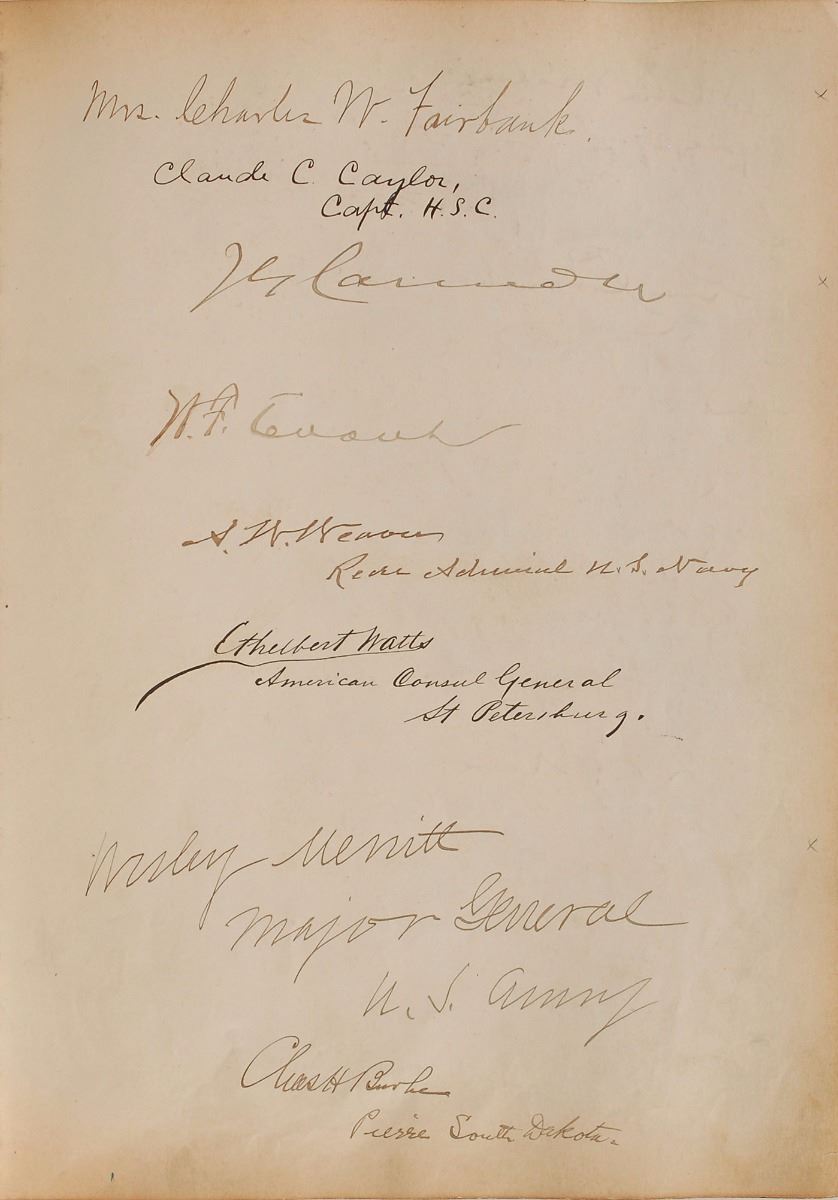 Mrs. Charles W. Fairbank.
Claude C. Caylor,
Capt. H.S.C.
W. F.
A. W. Weaver
Rear Admiral U. S. Navy
Ethelbert Watts
American Consul General
St Petersburg.
Wesley Merritt
Major General
U. S. Army
Chas H Burke
Pierre South Dakota.